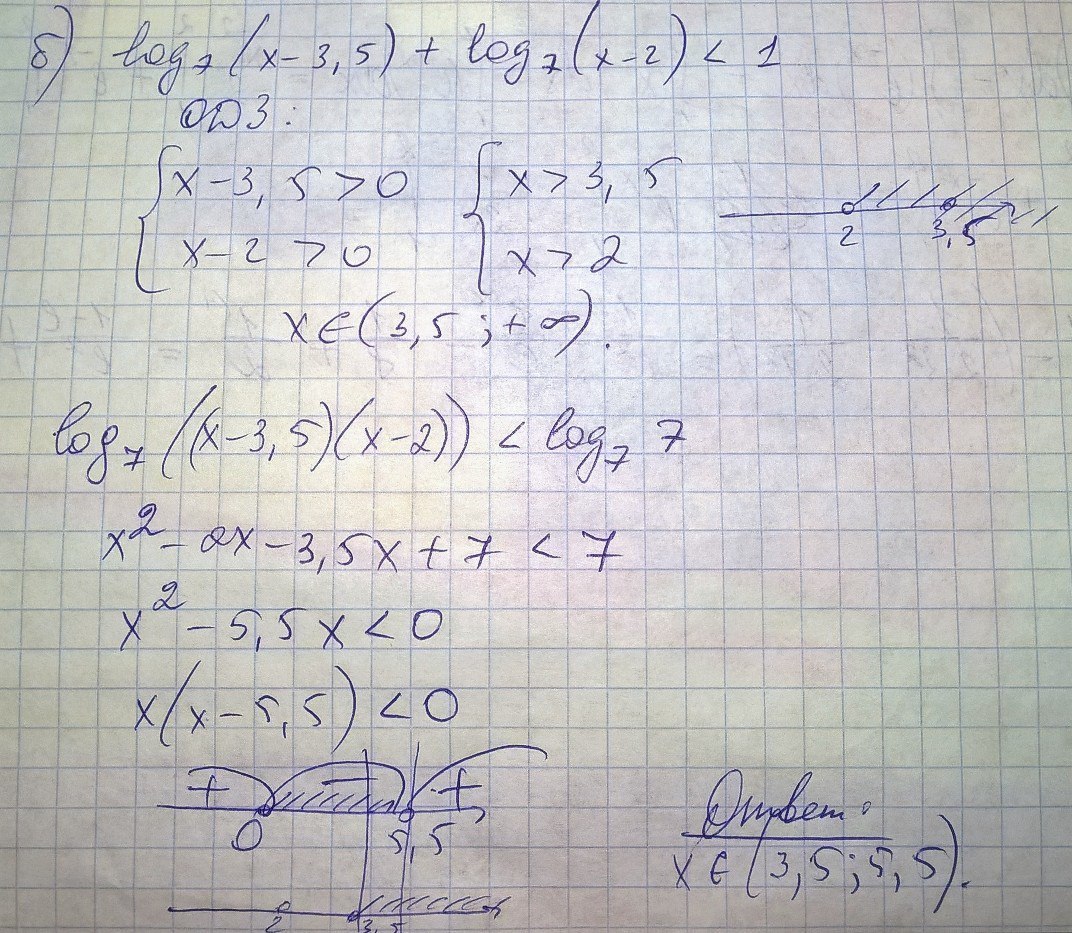 б) log₇(x-3,5) + log₇(x-2) < 1
ОДЗ:
{ x-3,5>0 { x>3,5
{ x-2>0 { x>2
2 3,5
x∈(3,5;+∞).
log₇((x-3,5)(x-2)) < log₇ 7
x² - 2x - 3,5x + 7 < 7
x² - 5,5x < 0
x(x-5,5) < 0
+ - +
0 5,5
2 3,5
Ответ:
x∈(3,5;5,5).